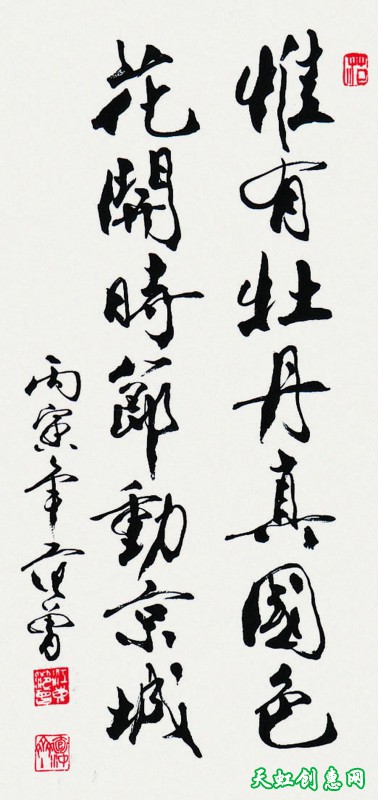 惟有牡丹真國色
花開時節動京城
丙寅年 范曾
天虹创惠网